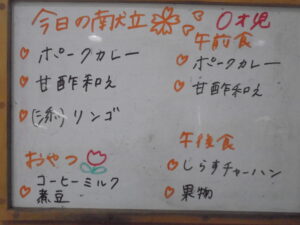 今日の献立
ポークカレー
甘酢和え
(添)リンゴ
おやつ
コーヒーミルク
煮豆
0才児
午前食
ポークカレー
甘酢和え
午後食
しらすチャーハン
果物